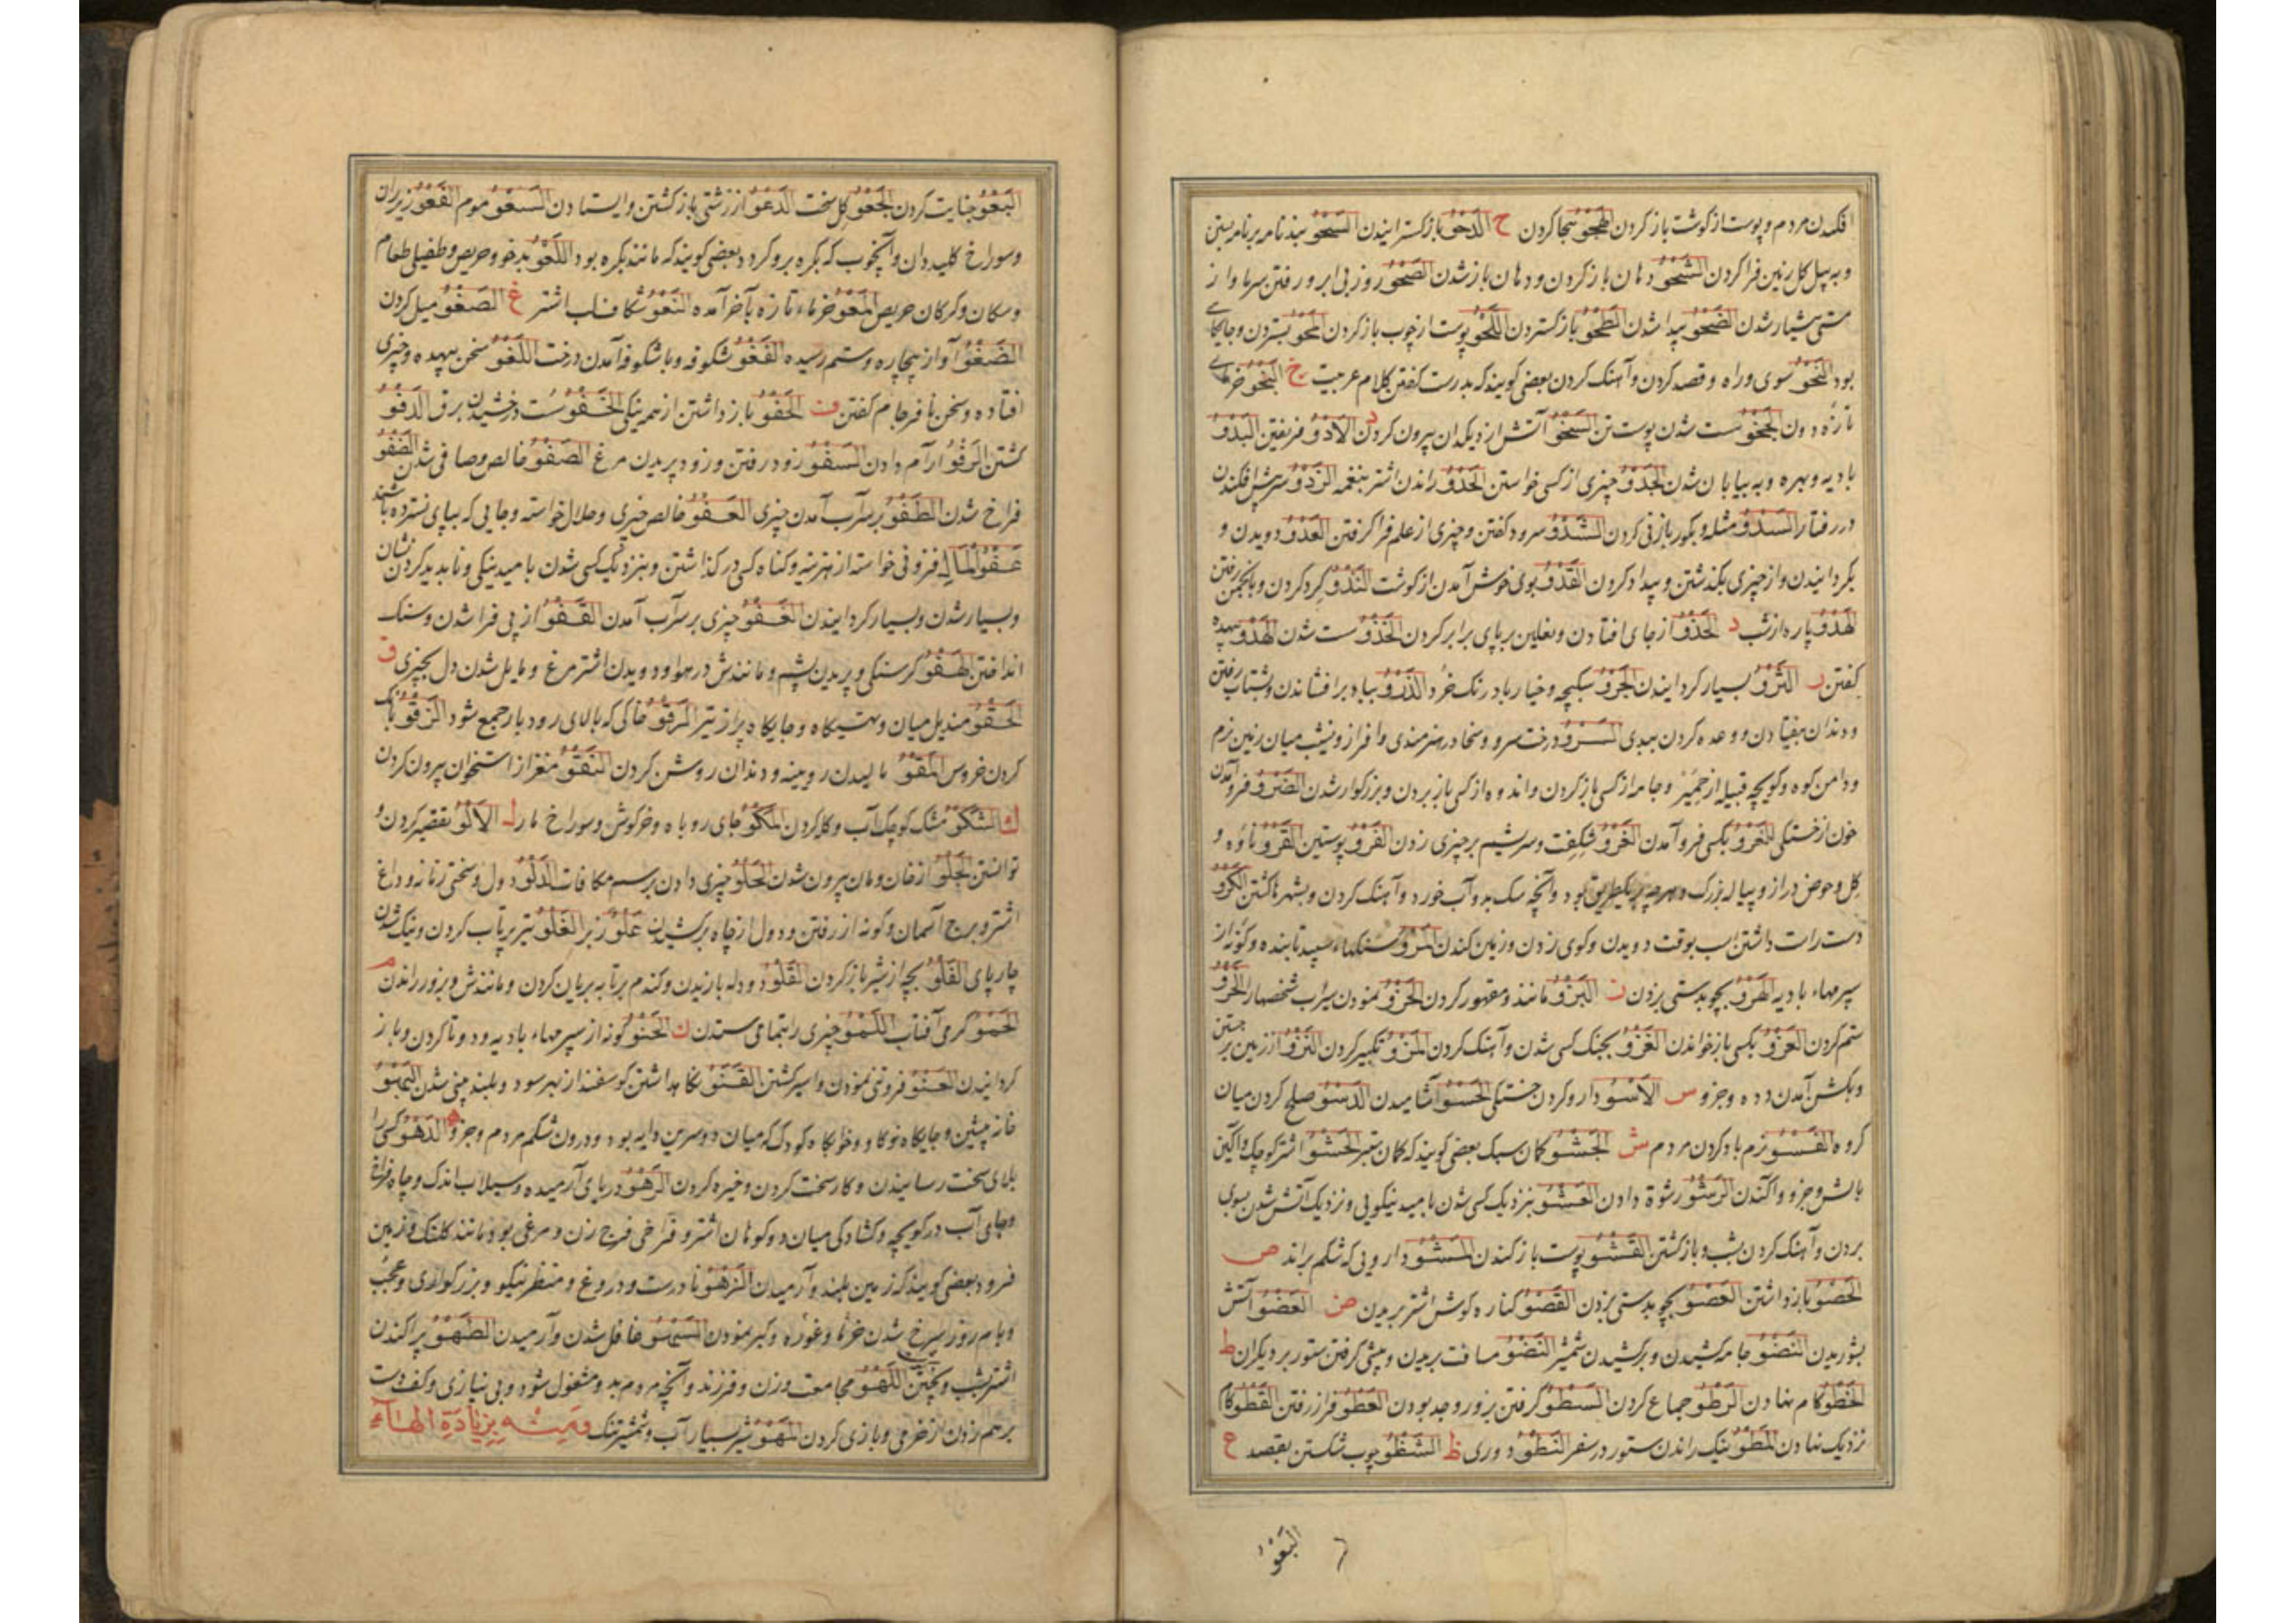 افکندن مردم و پوست از کوشت باز کردن الهجو هجا کردن ح الدحو باز کسترانیدن السحو بند نامه بر نامه بستن
و به بیل کل زمین فرا کردن الشحو دهان باز کردن و دهان باز شدن الصحو روز بی ابر و رفتن سرما و از
مستی هشیار شدن الضحو پیدا شدن الطحو باز کستردن اللحو پوست از چوب باز کردن المحو بستردن و جایکاهی
بود النحو سوی و راه و قصد کردن و آهنک کردن بعضی کویند که بدرست کفتن کلام عربیت خ النخو خرمای
تازه دون الجخو سست شدن پوست تن السخو آتش از دیکدان بیرون کردن د الادو فریفتن البدو
بادیه و بهره و به بیابان شدن الجدو چیزی از کسی خواستن الحدو راندن اشتر بنغمه الزدو
در رفتار السدو مثله و بکوز بازی کردن الشدو سرود کفتن و چیزی از علم فرا کرفتن العدو دویدن و
بکردانیدن و از چیزی بکذشتن و بیداد کردن القدو بوی خوش آمدن از کوشت الندو کرد کردن و بانجمن رفتن
الهدو پاره از شب ذ الحذو از جای افتادن و نعلین بر پای برابر کردن الخذو سست شدن الهذو بیهده
کفتن ر الثرو بسیار کردانیدن الجرو سکبچه و خیار بادرنک خرد الذرو بباد بر افشاندن و بشتاب رفتن
و دندان بیفتادن و وعده کردن ببدی السرو درخت سرو و سخا در هنرمندی و افراز و نشیب میان زمین نرم
و دامن کوه و کوچه قبیله از حمیر و جامه از کسی باز کردن و اندوه از کسی باز بردن و بزرکوار شدن الضرو فرو آمدن
خون از خستکی العرو بکسی فرو آمدن الغرو شکفت و سریشم بر چیزی زدن الفرو پوستین القرو ناوه و
کل و حوض دراز و پیاله بزرک و هرچه بر یکطریق بود و آنچه سک بدو آب خورد و آهنک کردن و بشهرها کشتن الکرو
دست راست داشتن اسب بوقت دویدن و کوی زدن و زمین کندن المرو سنکهاء سپید تابنده و کونه از
سپرمهاء بادیه الهرو بچوبدستی بزدن ز البزو مانند و مقهور کردن الحزو نمودن سراب شخصها را الخزو
ستم کردن العزو بکسی باز خواندن الغزو بجنک کسی شدن و آهنک کردن المزو تکبر کردن النزو از زمین بر جستن
و بکشن آمدن دده و جز او س الاسو دارو کردن خستکی الحسو آشامیدن الدسو صلح کردن میان
کروه الفسو نرم باد کردن مردم ش الجشو کمان سبک بعضی کویند که کمان ستبر الحشو اشتر کوچک و آکین
بالش و جز او و اکندن الرشو رشوة دادن العشو بنزدیک کسی شدن بامید نیکویی و نزدیک آتش شدن بسوی
بردن و آهنک کردن بشب و باز کشتن القشو پوست باز کندن المشو دارویی که شکم براند ص
الحصو باز داشتن العصو بچوبدستی بزدن القصو کناره کوش اشتر بریدن ض العضو آتش
بشوریدن النضو جامه کشیدن و برکشیدن شمشیر النضو مسافت بریدن و پیشی کرفتن ستور بر دیکران ط
الخطو کام نهادن الرطو جماع کردن السطو کرفتن بزور و جد بودن العطو فراز رفتن القطو کام
نزدیک نهادن المطو نیک راندن ستور در سفر النطو دوری ظ الشظو چوب شکستن بقصد ع
البعو
البعو جنایت کردن الجعو کل سخت الدعو از زشتی باز کشتن و ایستادن السعو موم الفعو زیران
و سوراخ کلیدان و آنچوب که بکره برو کردد بعضی کویند که مانند بکره بود اللعو بدخو و حریص و طفیلی طعام
و سکان و کرکان حریص المعو خرماء تازه بآخر آمده النعو شکاف لب اشتر غ الصغو میل کردن
الضغو آواز بیچاره و ستم رسیده الفغو شکوفه و با شکوفه آمدن درخت اللغو سخن بیهده و چیزی
افتاده و سخن نافرجام کفتن ف الحفو باز داشتن از همه نیکی الخفو سست درخشیدن برق الدفو
کشتن الرفو آرام دادن السفو زود رفتن و زود پریدن مرغ الصفو خالص و صافی شدن الضفو
فراخ شدن الطفو بر سر آب آمدن چیزی العفو خالص چیزی و حلال خواسته و جایی که بپای نسپرده باشند
عفو المال فزونی خواسته از هزینه و کناه کسی در کذاشتن و بنزدیک کسی شدن بامید نیکی و ناپدید کردن نشان
و بسیار شدن و بسیار کردانیدن الغفو چیزی بر سر آب آمدن القفو از پی فرا شدن و سنک
انداختن الهفو کرسنکی و پریدن پشم و مانندش در هوا و دویدن اشتر مرغ و مایل شدن دل بچیزی ق
الحقو مندیل میان و تهیکاه و جایکاه پر از تیر المرقو خاکی که بالای رود بار جمع شود الزقو بانک
کردن خروس المقو مالیدن رویینه و دندان روشن کردن النقو مغز از استخوان بیرون کردن
ک الشکو مشک کوچک آب و کله کردن المکو جای روباه و خرکوش و سوراخ مار ل الالو تقصیر کردن و
توانستن الجلو از خان و مان بیرون شدن الحلو چیزی دادن برسم مکافات الدلو دول و سختی زمانه و داغ
اشتر و برج آسمان و کونه از رفتن و دول از چاه برکشیدن علو زبر الغلو تیر پرتاب کردن و نیک شدن
چارپای الفلو بچه از شیر باز کردن القلو دودله بازیدن و کندم بر تابه بریان کردن و مانندش و بزور راندن م
الحمو کرمی آفتاب اللمو چیزی را بتمامی ستدن ن الحنو کونه از سپرمهاء بادیه و دوتا کردن و باز
کردانیدن العنو فروتنی نمودن و اسیر کشتن القنو نکاه داشتن کوسفند از بهر سود و بلند بینی شدن البهو
خانه پیشین و جایکاه نو کاو و خوابکاه کودک که میان دو سرین دایه بود و درون شکم مردم و جز او ه الدهو کسی را
بلای سخت رسانیدن و کار سخت کردن و خیره کردن الرهو دریای آرمیده و سیلاب اندک و چاه فراخ
و جای آب در کوچه و کشادکی میان دو کوهان اشتر و فراخی فرج زن و مرغی بود مانند کلنک و زمین
فرود بعضی کویند که زمین بلند و آرمیدن الزهو نادرست و دروغ و منظر نیکو و بزرکواری و عجب
و بام روز سرخ شدن خرما و غوره و کبر نمودن السهو غافل شدن و آرمیدن الطهو پراکندن
اشتر بشب و پختن اللهو مجامعت و زن و فرزند و آنچه مردم بدو مشغول شود و بی نیازی و کف دست
بر هم زدن از خرمی و بازی کردن المهو شیر بسیار آب و شمشیر تنک ومنه بزیادة الهاء